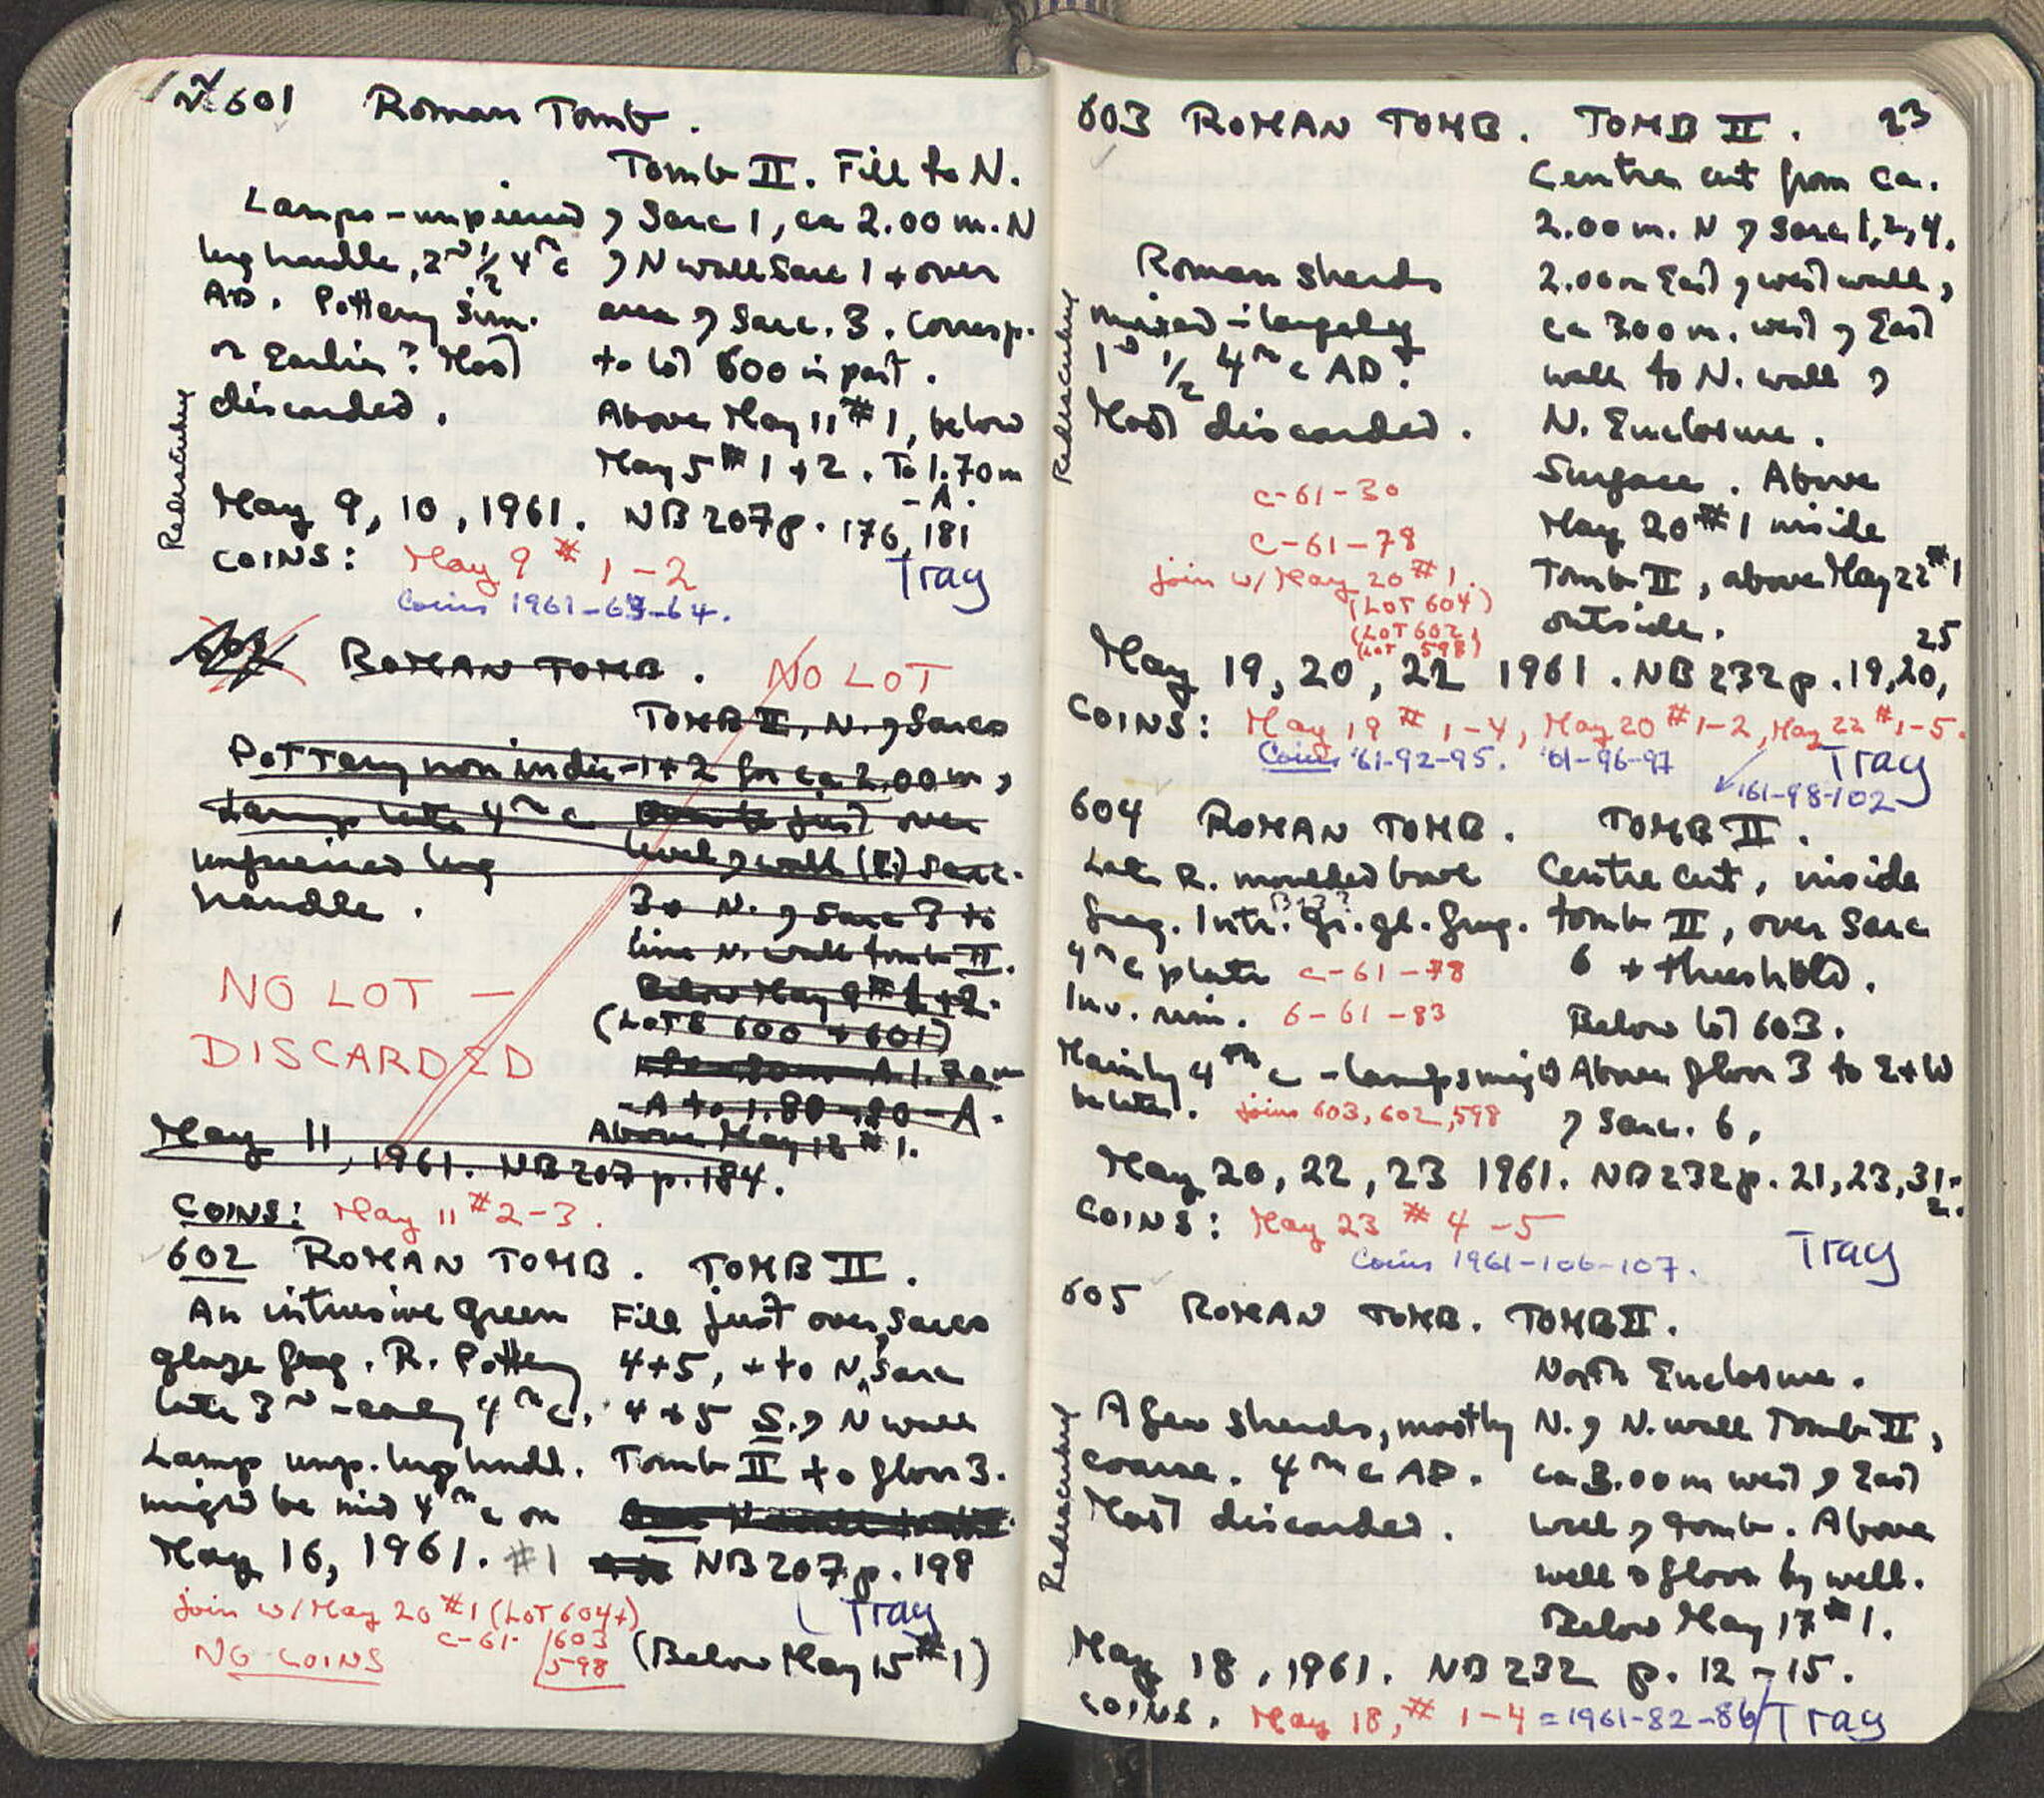 601 Roman Tomb.
Tomb II. Fill to N.
Lamps - unpierced
lug handle, 2nd 1/2 4th c
AD. Pottery sim.
or Earlier? Most
discarded.
Sarc 1, ca 2.00 m. N
N wall Sarc 1 + over
area Sarc. 3. Corresp.
to lot 600 in part.
Above May 11 #1, below
May 5 #1+2. To 1.70m
-A.
Redescubey
May 9, 10, 1961. NB 207 p. 176, 181
COINS: May 9 #1-2
Tray
Coins 1961-63-64.
ROMAN TOMB. NO LOT
TOMB II, N. Sarcs
Pottery non indic-
Lamp late 4th c
unpierced lug
handle.
1+2 for ca 2.00m
over
level wall (E) Sarc.
3 + N. Sarc 3 to
line N. wall tomb II.
Below May 9 #1+2.
(LOTS 600 + 601)
A 1.70m
-A to 1.80 - A.
Above May 12 #1.
NO LOT -
DISCARDED
May 11, 1961. NB 207 p. 184.
COINS: May 11 #2-3.
602 ROMAN TOMB. TOMB II.
An intrusive green
glaze frag. R. Pottery
late 3rd - early 4th c.
Lamp unp. lug handl.
might be mid 4th c on
Fill just over Sarcs
4+5, + to N, Sarc
4+5 S. N wall
Tomb II to floor 3.
May 16, 1961. #1 NB 207 p. 198
Tray
join w/ May 20 #1 (LOT 604+)
C-61- 603
598
NO COINS
(Below May 15 #1)
23
603 ROMAN TOMB. TOMB II.
Roman sherds
mixed - largely
1st 1/2 4th c AD+
Most discarded.
Centre cut from ca.
2.00 m. N Sarc 1, 2, 4,
2.00m East west wall,
ca 3.00 m. west East
wall to N. wall
N. Enclosure.
Surface. Above
May 20 #1 inside
Tomb II, above May 22 #1
outside.
C-61-30
C-61-78
join w/ May 20 #1.
(LOT 604)
(LOT 602,
(LOT 598)
May 19, 20, 22 1961. NB 232 p. 19, 20, 25
COINS: May 19 #1-4, May 20 #1-2, May 22 #1-5.
Coins '61-92-95. '61-96-97 Tray
'61-98-102
604 ROMAN TOMB. TOMB II.
Late R. moulded bowl
frag. Intr. Gr. gl. frag.
4th c plate C-61-78
Inv. rim. 6-61-83
Mainly 4th c - lamps might
be later. joins 603, 602, 598
Centre cut, inside
tomb II, over Sarc
6 + threshold.
Below lot 603.
Above floor 3 to E+W
Sarc. 6.
May 20, 22, 23 1961. NB 232 p. 21, 23, 31-2.
COINS: May 23 #4-5
Coins 1961-106-107.
Tray
605 ROMAN TOMB. TOMB II.
North Enclosure.
A few sherds, mostly
coarse. 4th c AD.
Most discarded.
N. N. wall Tomb II,
ca 3.00m west East
wall tomb. Above
well floor by well.
Below May 17 #1.
May 18, 1961. NB 232 p. 12-15.
COINS. May 18, #1-4 = 1961-82-86 Tray